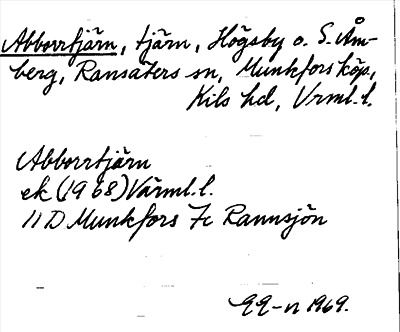 Abborrtjärn, tjärn, Högsby o. S. Åm-
berg, Ransäters sn, Munkfors köp,
Kils hd, Vrml. l.
Abborrtjärn
ek (1968) Värml. l.
11 D Munkfors 7c Rannsjön
1969.